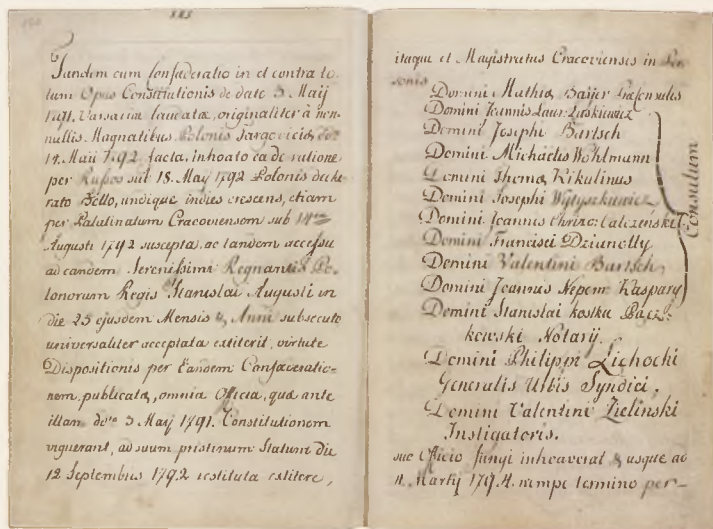 Tandem cum Confaderatio in et contra to-
tum Opus Constitutionis de date 3 Maij
1791. Varsavia laudatæ, originaliter à non-
nullis Magnatibus Polonis Targovicia, de
14. Maii 1792 facta, inhoato ea de ratione
per Russos sub 18. May 1792 Polonis decla-
rato Bello, undique indies crescens, etiam
per Palatinatum Cracoviensem sub
Augusti 1792 suscepta, ac tandem accessu
ad eandem Serenissimi Regnantis Po-
lonorum Regis Stanislai Augusti in
die 25 ejusdem Mensis & Anni subsecuto
universaliter acceptata extiterit, virtute
Dispositionis per Eandem Confaderatio-
nem publicata, omnia Officia, quæ ante
illam de 3 May 1791. Constitutionem
viguerant, ad suum pristinum Statum die
12 Septembris 1792 restituta extitere,
itaque et Magistratus Cracoviensis in Per-
sonis
Domini Mathia Bajer Præsulis
Domini Joannis Laur: Laskiewicz
Domini Josephi Bartsch
Domini Michaelis Wohlmann
Domini Thoma Kikulinus
Domini Josephi Wytyszkiewicz
Domini Joannis Chrizo:
Domini Francisci Dziunolly
Domini Valentini Bartsch,
Domini Joannis Nepom: Kaspary
Consulum
Domini Stanislai Kostka Pacz-
kowski Notarij.
Domini Philippi Lichocki
Generalis Urbis Syndici.
Domini Valentini Zielinski
Instigatoris.
suo Officio fungi inhoaverat & usque ad
Martij 1794. nempe termino per-